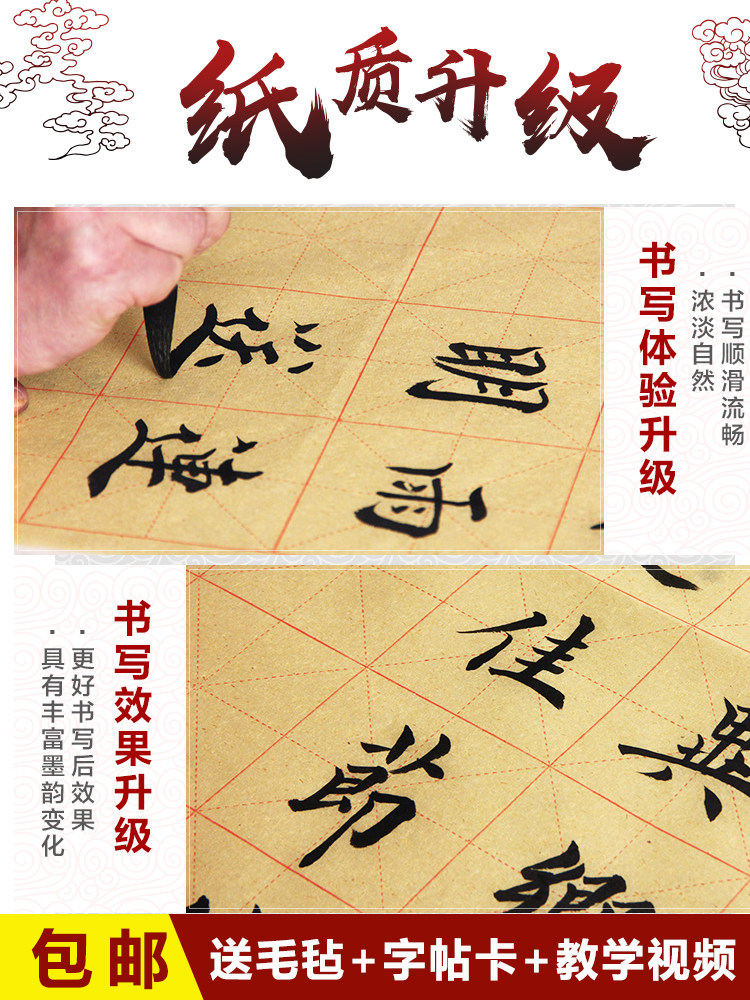 纸质升级
书写体验升级
·书写顺滑流畅
·浓淡自然
送 明
连 雨
书写效果升级
·更好书写后效果
·具有丰富墨韵变化
佳
节
包邮
送毛毡+字帖卡+教学视频